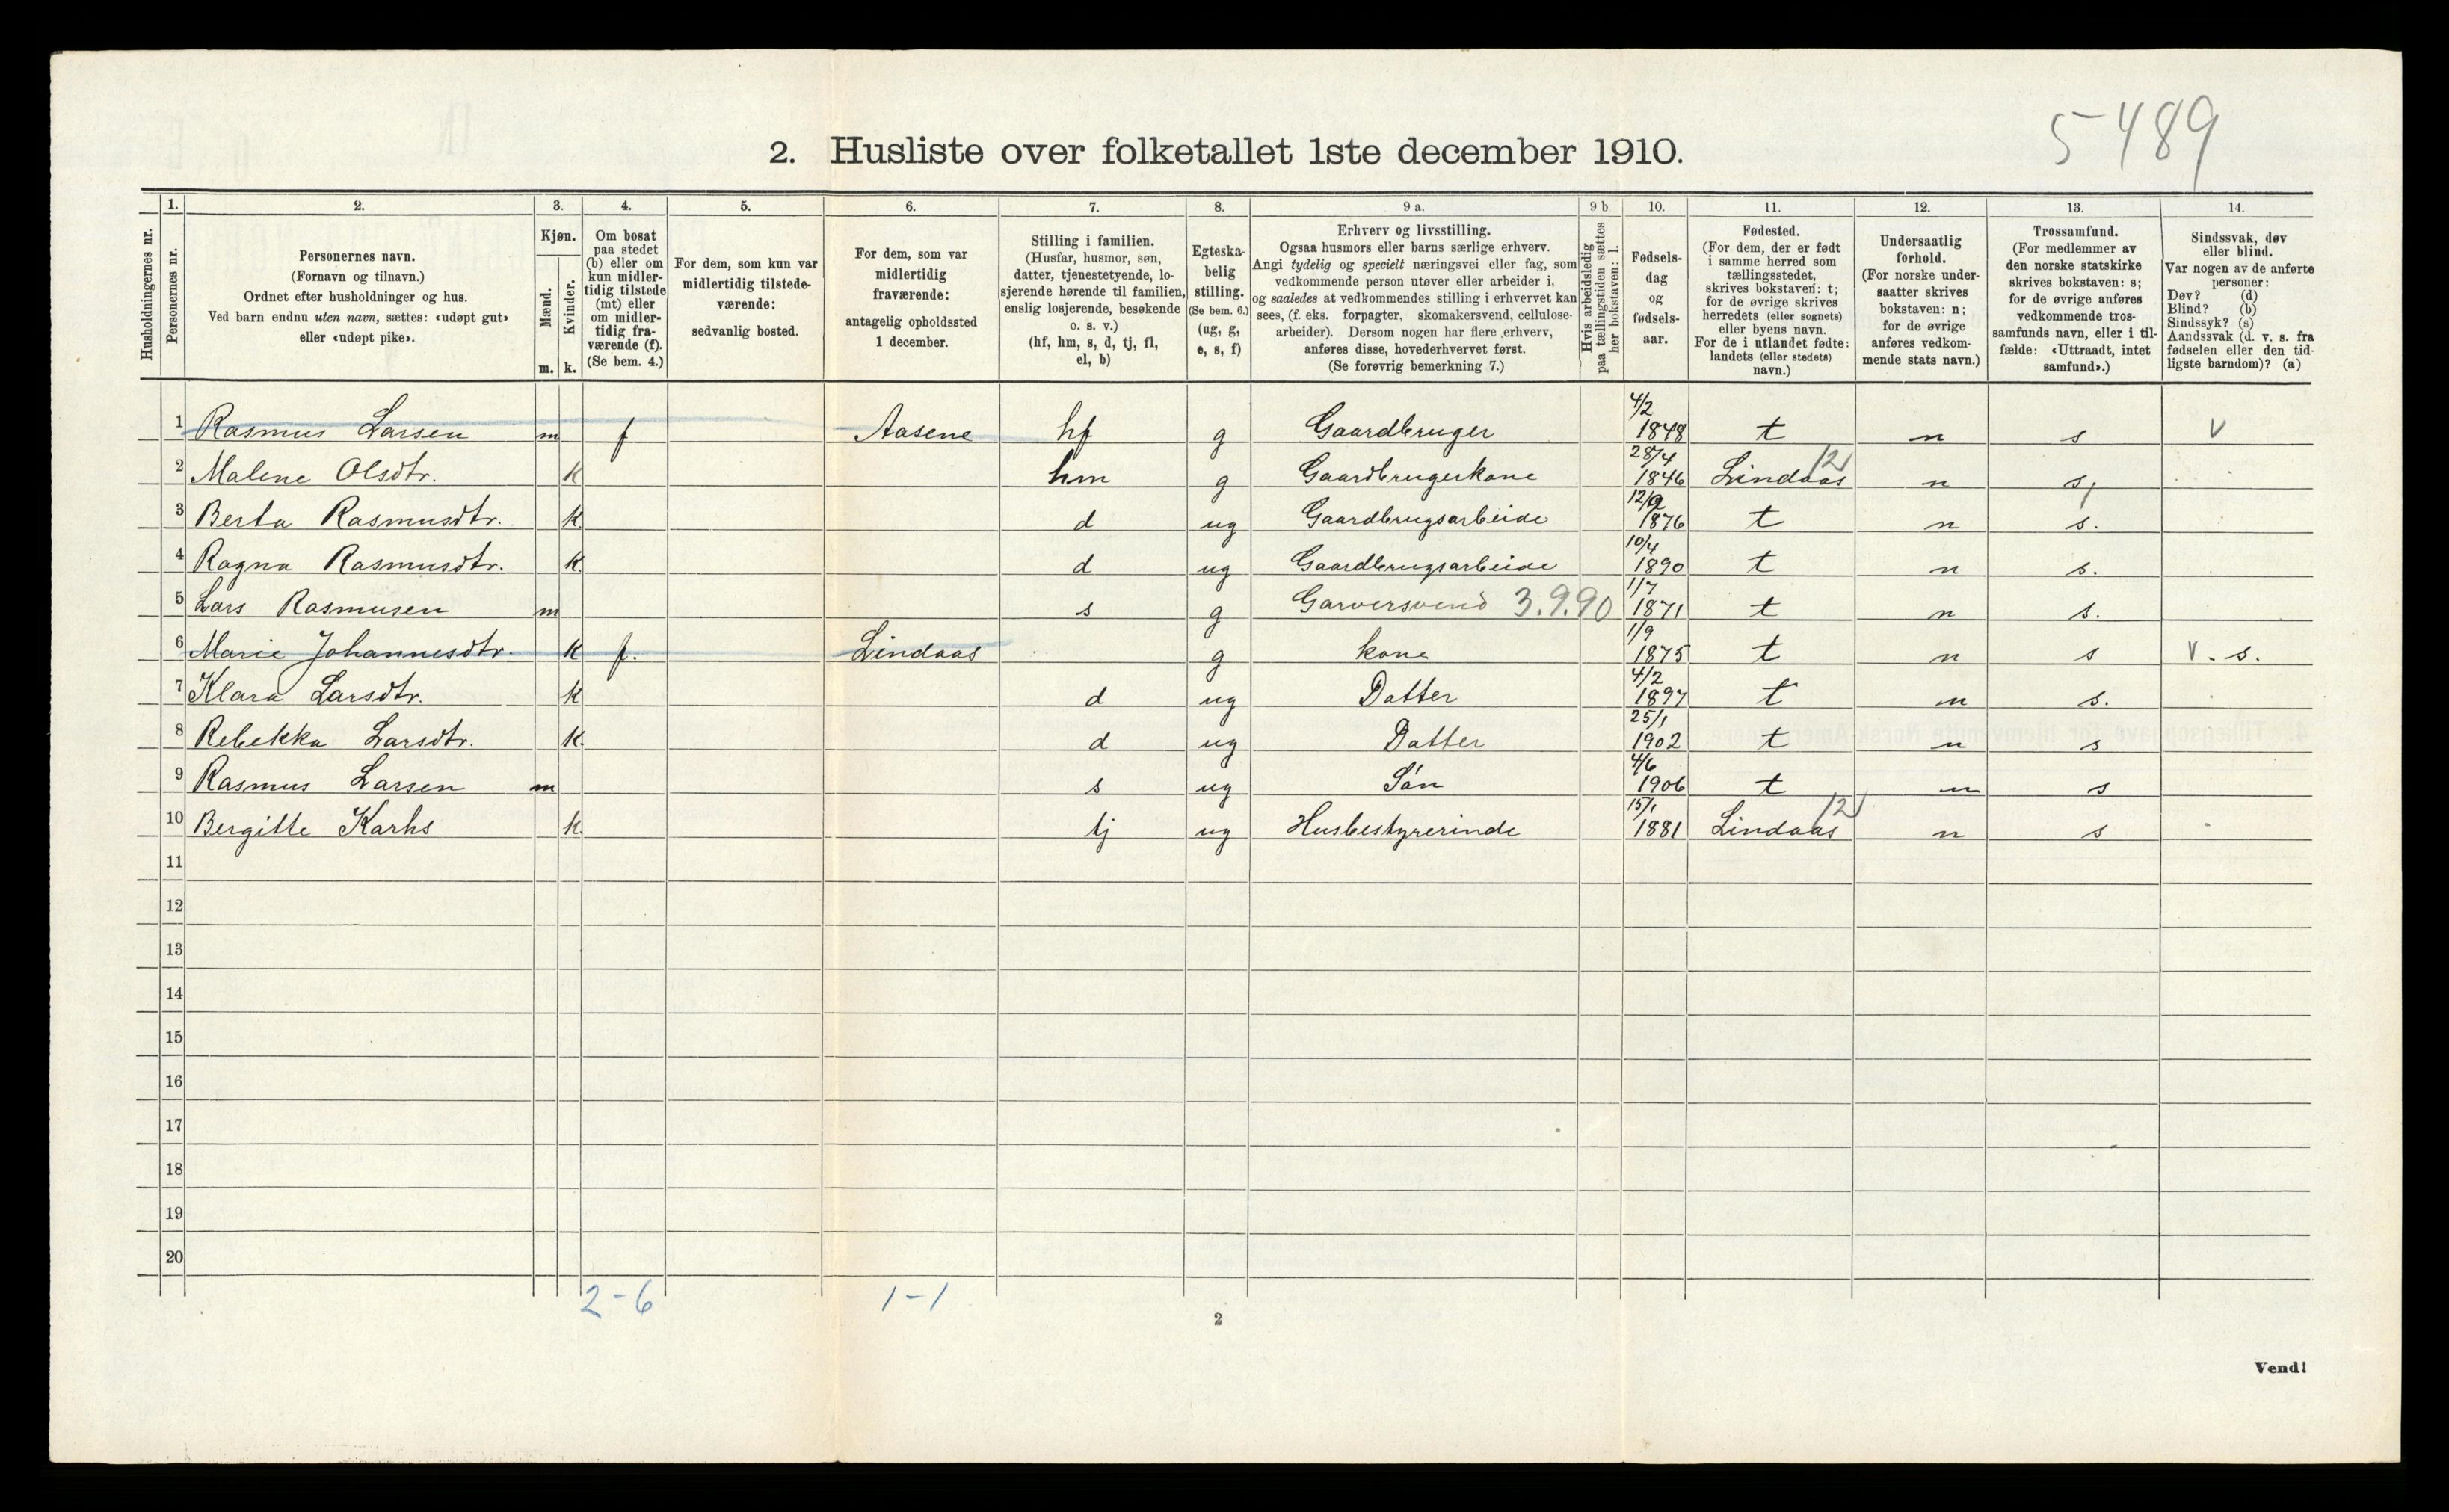 5-489
2. Husliste over folketallet 1ste december 1910.
Husholdningernes nr.
1.
Personernes nr.
2.
Personernes navn.
(Fornavn og tilnavn.)
Ordnet efter husholdninger og hus.
Ved barn endnu uten navn, sættes: «udøpt gut»
eller «udøpt pike».
3.
Kjøn.
Mænd.
Kvinder.
m. k.
4.
Om bosat
paa stedet
(b) eller om
kun midler-
tidig tilstede
(mt) eller
om midler-
tidig fra-
værende (f).
(Se bem. 4.)
5.
For dem, som kun var
midlertidig tilstede-
værende:
sedvanlig bosted.
6.
For dem, som var
midlertidig
fraværende:
antagelig opholdssted
1 december.
7.
Stilling i familien.
(Husfar, husmor, søn,
datter, tjenestetyende, lo-
sjerende hørende til familien,
enslig losjerende, besøkende
o. s. v.)
(hf, hm, s, d, tj, fl,
el, b)
8.
Egteska-
belig
stilling.
(Se bem. 6.)
(ug, g,
e, s, f)
9 a.
Erhverv og livsstilling.
Ogsaa husmors eller barns særlige erhverv.
Angi tydelig og specielt næringsvei eller fag, som
vedkommende person utøver eller arbeider i,
og saaledes at vedkommendes stilling i erhvervet kan
sees, (f. eks. forpagter, skomakersvend, cellulose-
arbeider). Dersom nogen har flere erhverv,
anføres disse, hovederhvervet først.
(Se forøvrig bemerkning 7.)
9 b
Hvis arbeidsledig
paa tællingstiden sættes
her bokstaven: l.
10.
Fødsels-
dag
og
fødsels-
aar.
11.
Fødested.
(For dem, der er født
i samme herred som
tællingsstedet,
skrives bokstaven: t;
for de øvrige skrives
herredets (eller sognets)
eller byens navn.
For de i utlandet fødte:
landets (eller stedets)
navn.)
12.
Undersaatlig
forhold.
(For norske under-
saatter skrives
bokstaven: n;
for de øvrige
anføres vedkom-
mende stats navn.)
13.
Trossamfund.
(For medlemmer av
den norske statskirke
skrives bokstaven: s;
for de øvrige anføres
vedkommende tros-
samfunds navn, eller i til-
fælde: «Uttraadt, intet
samfund».)
14.
Sindssvak, døv
eller blind.
Var nogen av de anførte
personer:
Døv? (d)
Blind? (b)
Sindssyk? (s)
Aandssvak (d. v. s. fra
fødselen eller den tid-
ligste barndom)? (a)
1 Rasmus Larsen m f Aasene hf g Gaardbruger 4/2 1848 t n s V
2 Malene Olsdtr. k hm g Gaardbrugerkone 28/4 1846 Lindaas 12 n s,
3 Berta Rasmusdtr. k d ug Gaardbrugsarbeide 12/9 1876 t n s.
4 Ragna Rasmusdtr. k d ug Gaardbrugsarbeide 10/4 1890 t n s.
5 Lars Rasmusen m s g Garversvend 3.9.90 1/7 1871 t n s.
6 Marie Johannesdtr. k f. Lindaas g kone 1/9 1875 t n s V. s.
7 Klara Larsdtr. k d ug Datter 4/2 1897 t n s.
8 Rebekka Larsdtr. k d ug Datter 25/1 1902 t n s
9 Rasmus Larsen m s ug Søn 4/6 1906 t n s
10 Bergitte Karhs k tj ug Husbestyrerinde 15/1 1881 Lindaas 12 n s
11
12
13
14
15
16
17
18
19
20
2-6 1-1
2
Vend!